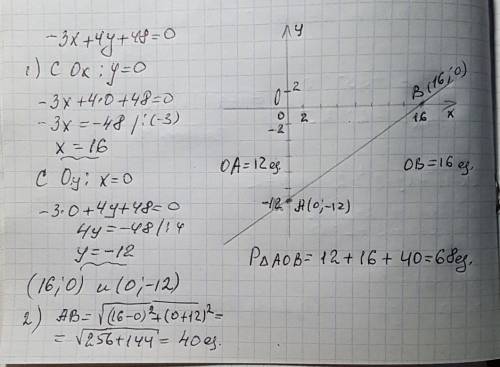 -3x+4y+48=0
1) С Ox: y=0
-3x+4·0+48=0
-3x=-48 /:(-3)
x=16
С Oy: x=0
-3·0+4y+48=0
4y=-48/:4
y=-12
(16;0) и (0;-12)
2) AB=√(16-0)²+(0+12)²=
=√256+144=40ед.
y
B(16;0)
0 2
0 2 16 x
-2
OA=12ед. OB=16ед.
-12 A(0;-12)
P△AOB=12+16+40=68ед.